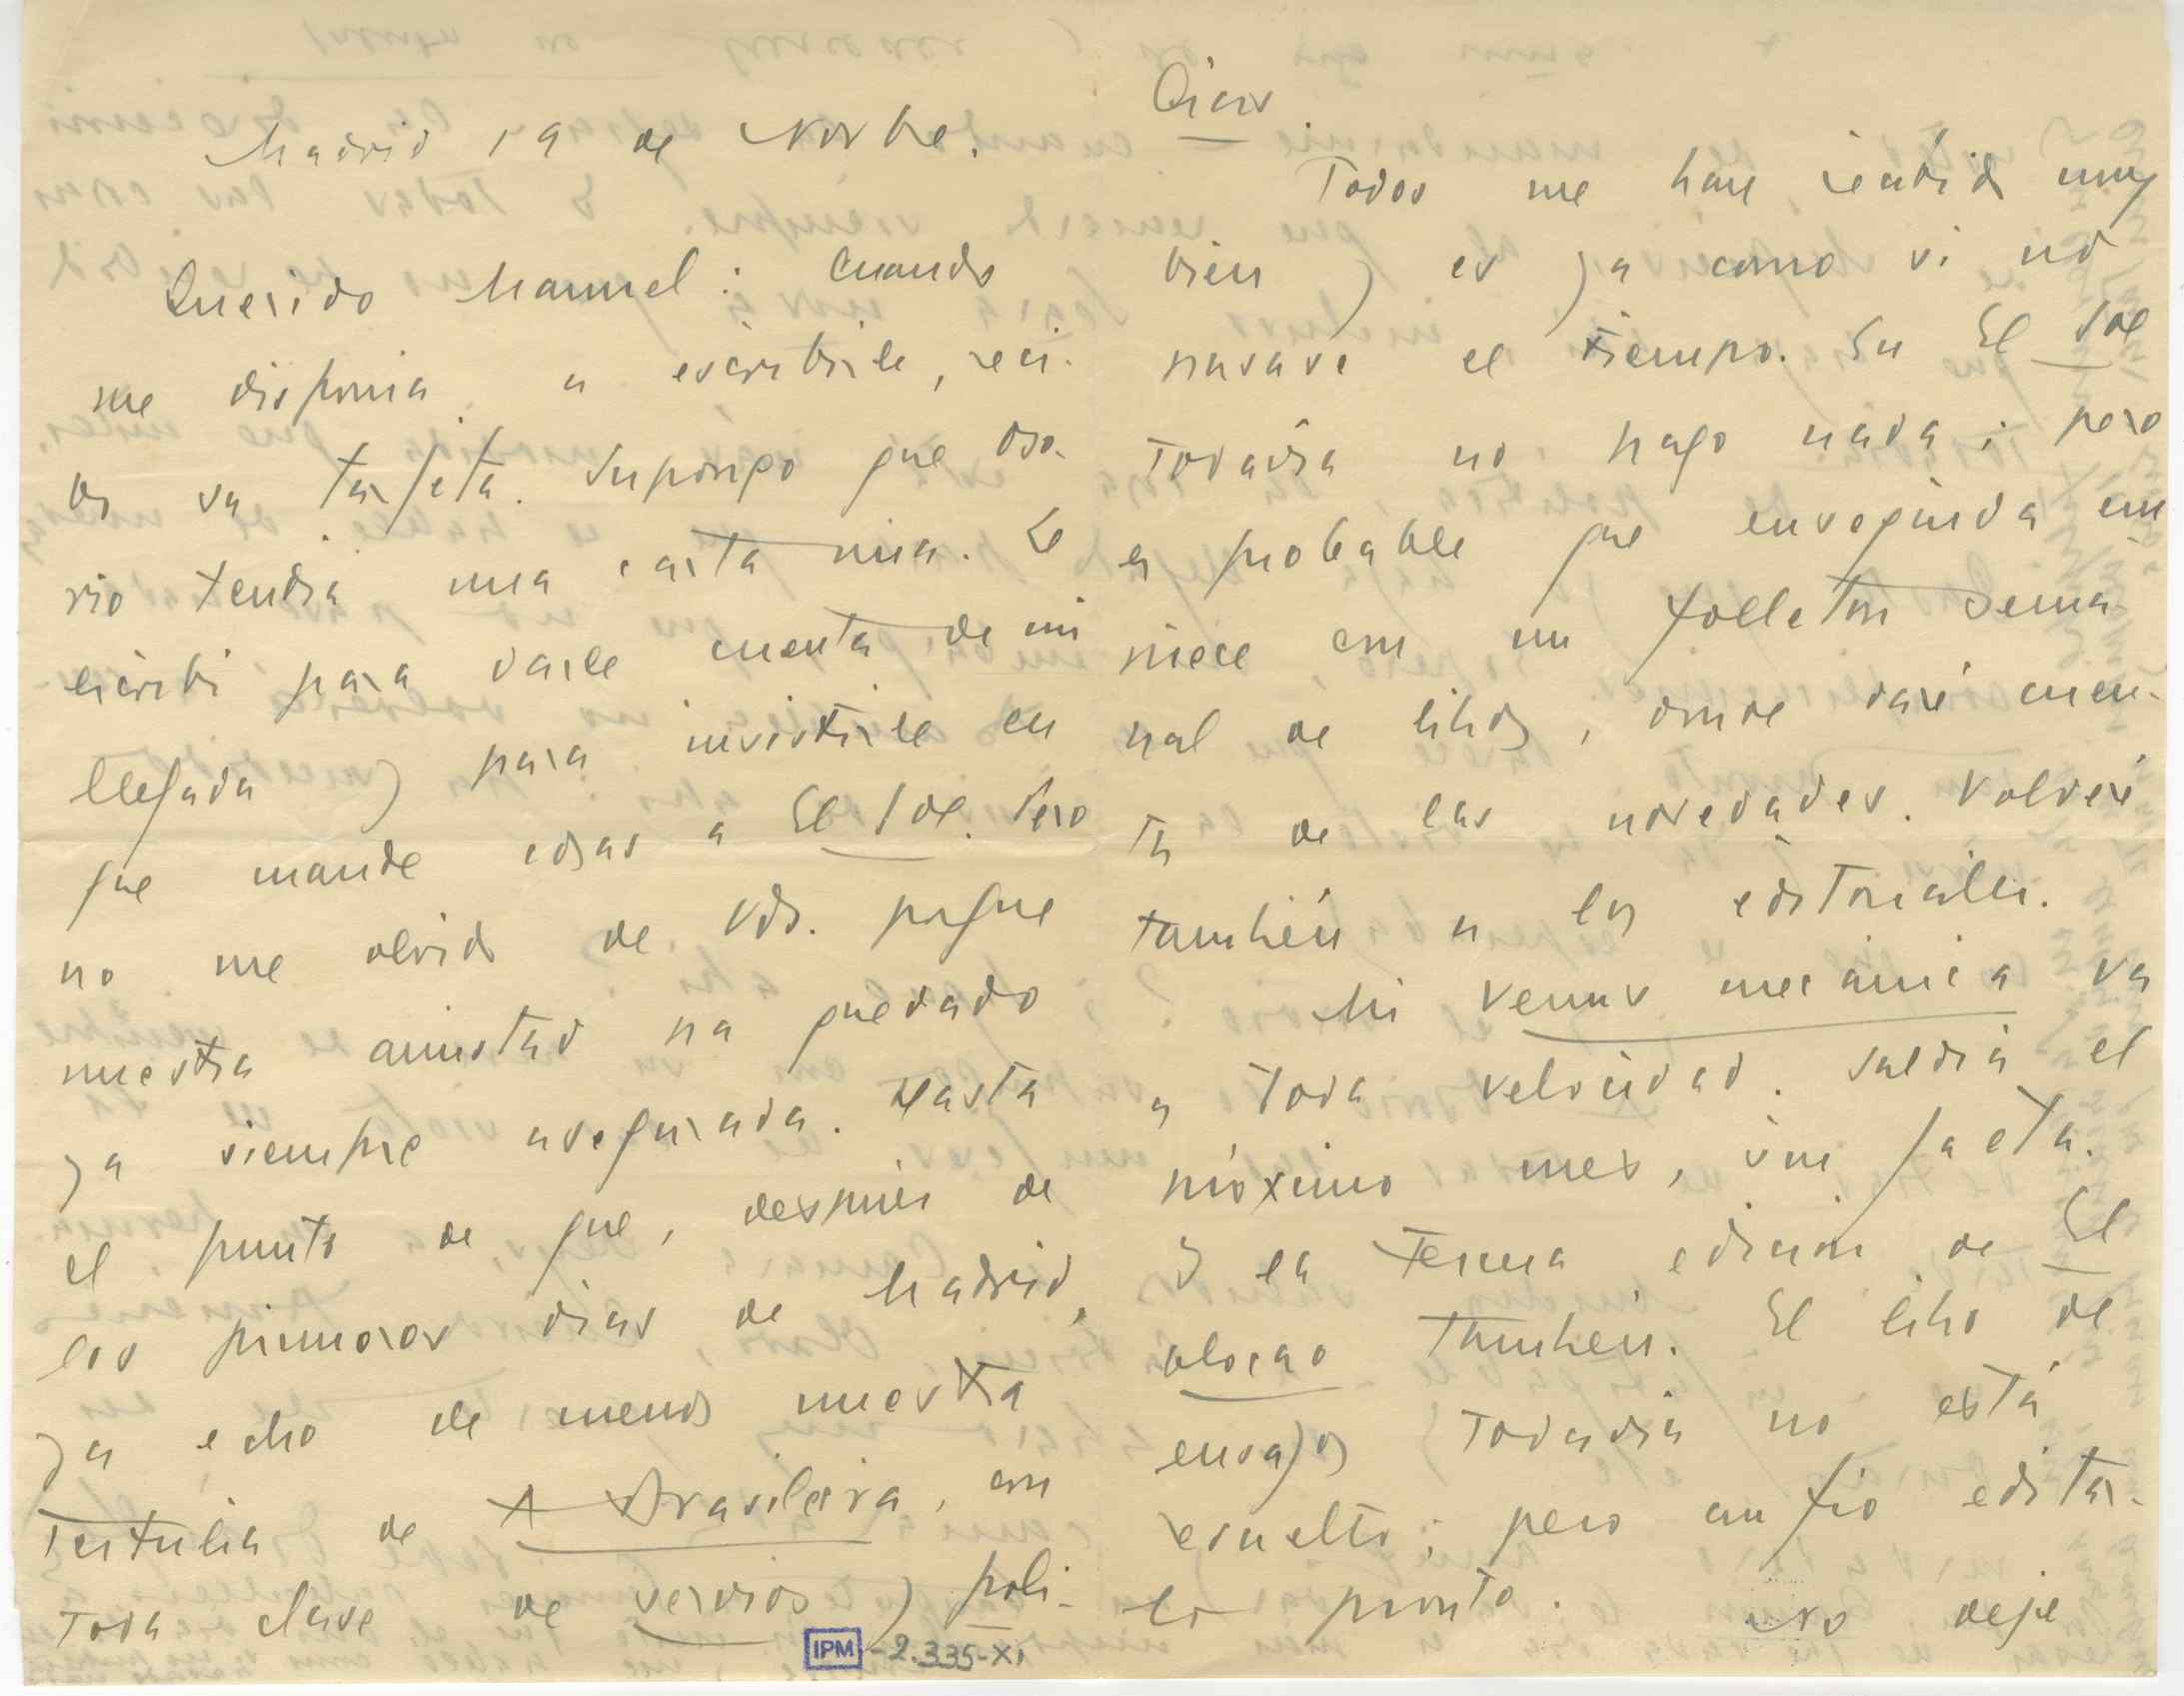 Madrid 19 de Novbre.
Querido Manuel: Cuando
me disponia a escribirle, reci-
bo su tarjeta. Supongo que Oso-
rio tendría una carta mia. Le
escribi para darle cuenta de mi
llegada y para insistirle en
que mande cosas a El Sol. Pero
no me olvido de Vds. porque
nuestra amistad ha quedado
ya siempre asegurada. Hasta
el punto de que, después de
los primeros dias de Madrid,
ya echo de menos nuestra
tertulia de A Brasileira, con
toda clase de servios y poli-
cias.
Todos me han recibido muy
bien y es ya como si no
pasase el tiempo. En El Sol
todavía no hago nada; pero
es probable que enseguida em
piece con un folletón sema-
nal de libros, donde daré cuen-
ta de las novedades. Volveré
también a los editoriales.
Mi Venus mecánica va
a toda velocidad. Saldrá el
próximo mes, sin faeta.
Y la tercera edición de El
blocao también. El libro de
ensayos todavía no está
resuelto; pero confío editar-
lo pronto. No deje
IPM -2.335-XI